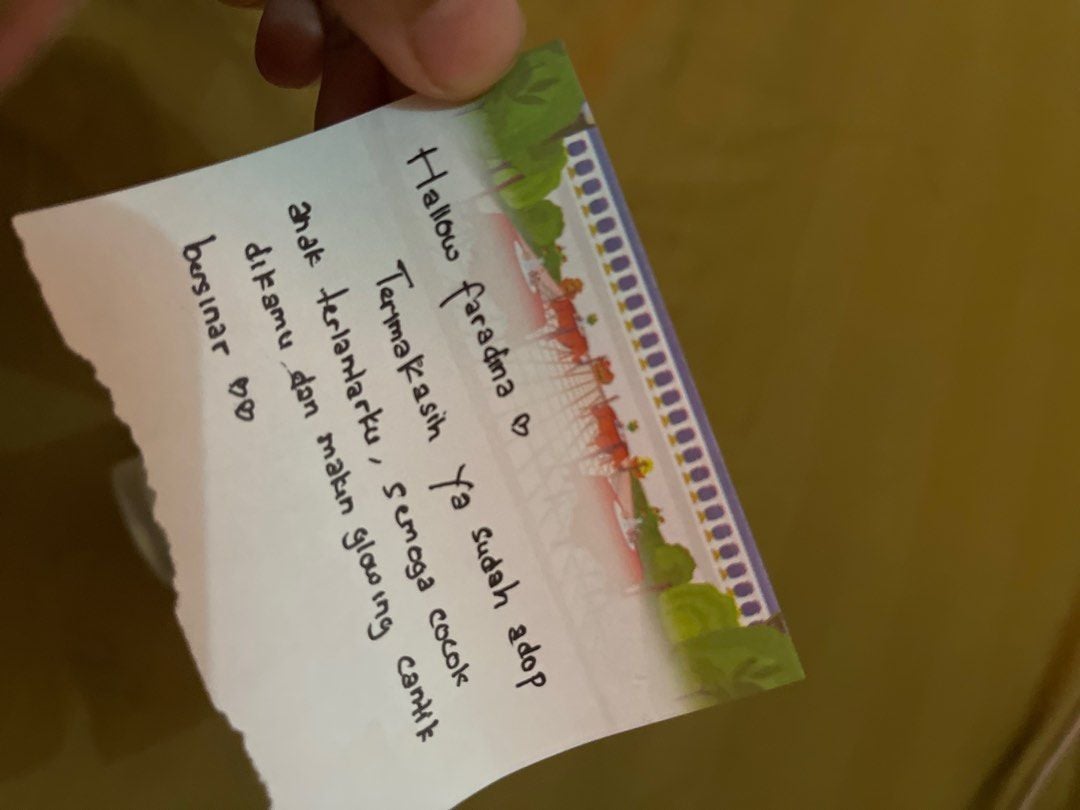 Hallow faradina ♡
Terimakasih ya sudah adop
anak terlantarku, semoga cocok
dikamu dan makin glowing cantik
bersinar ♡♡